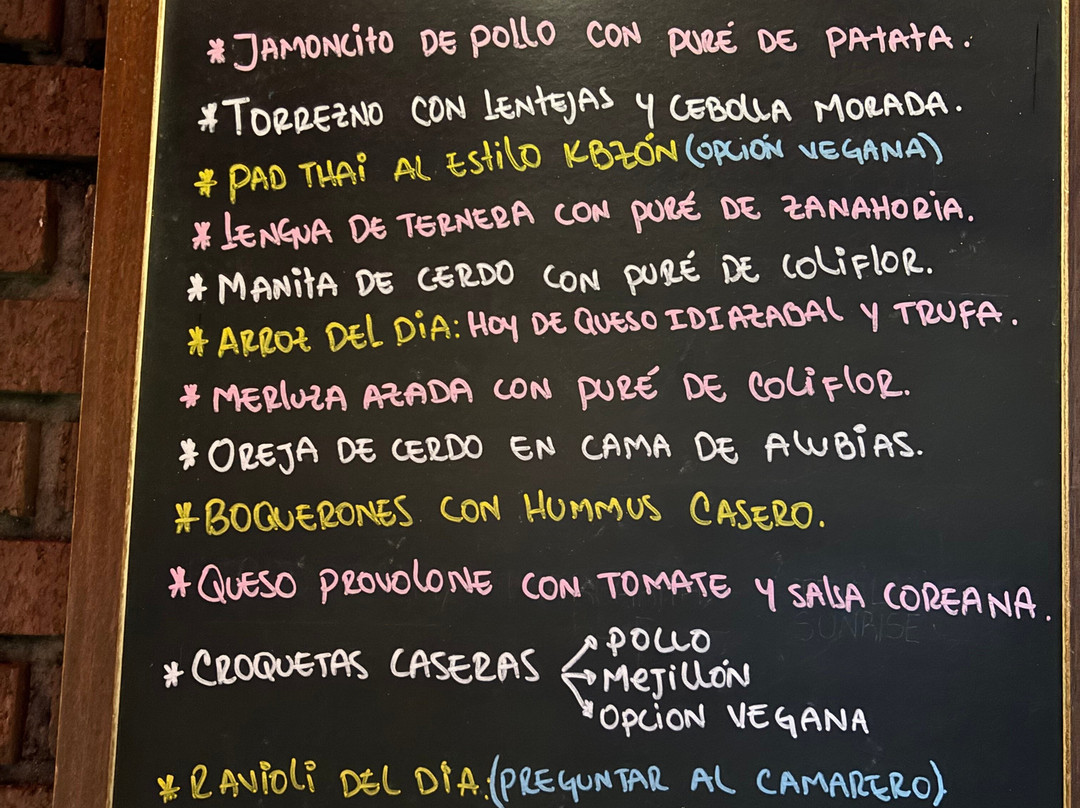 * JAMONCITO DE POLLO CON PURÉ DE PATATA.
* TORREZNO CON LENTEJAS Y CEBOLLA MORADA.
* PAD THAI AL ESTILO KBZÓN (OPCIÓN VEGANA)
* LENGUA DE TERNERA CON PURÉ DE ZANAHORIA.
* MANITA DE CERDO CON PURÉ DE COLIFLOR.
* ARROZ DEL DIA: HOY DE QUESO IDIAZABAL Y TRUFA.
* MERLUZA AZADA CON PURÉ DE COLIFLOR.
* OREJA DE CERDO EN CAMA DE ALUBIAS.
* BOQUERONES CON HUMMUS CASERO.
* QUESO PROVOLONE CON TOMATE Y SALSA COREANA.
SUNRISE
* CROQUETAS CASERAS
POLLO
MEJILLÓN
OPCION VEGANA
* RAVIOLI DEL DIA: (PREGUNTAR AL CAMARERO)